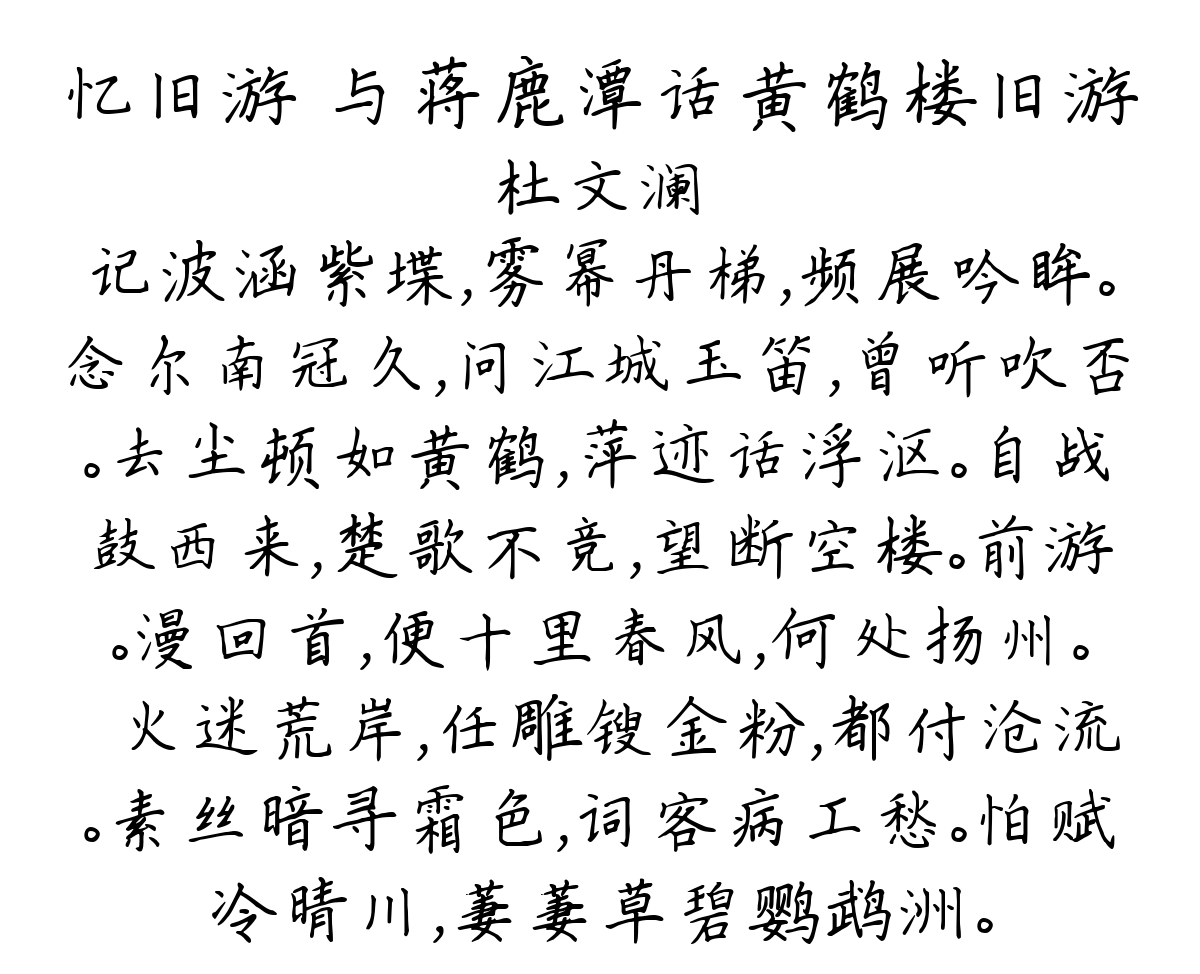 忆旧游 与蒋鹿潭话黄鹤楼旧游
杜文澜
记波涵紫堞,雾幂丹梯,频展吟眸。
念尔南冠久,问江城玉笛,曾听吹否
。去尘顿如黄鹤,萍迹话浮沤。自战
鼓西来,楚歌不竞,望断空楼。前游
。漫回首,便十里春风,何处扬州。
火迷荒岸,任雕锼金粉,都付沧流
。素丝暗寻霜色,词客病工愁。怕赋
冷晴川,萋萋草碧鹦鹉洲。